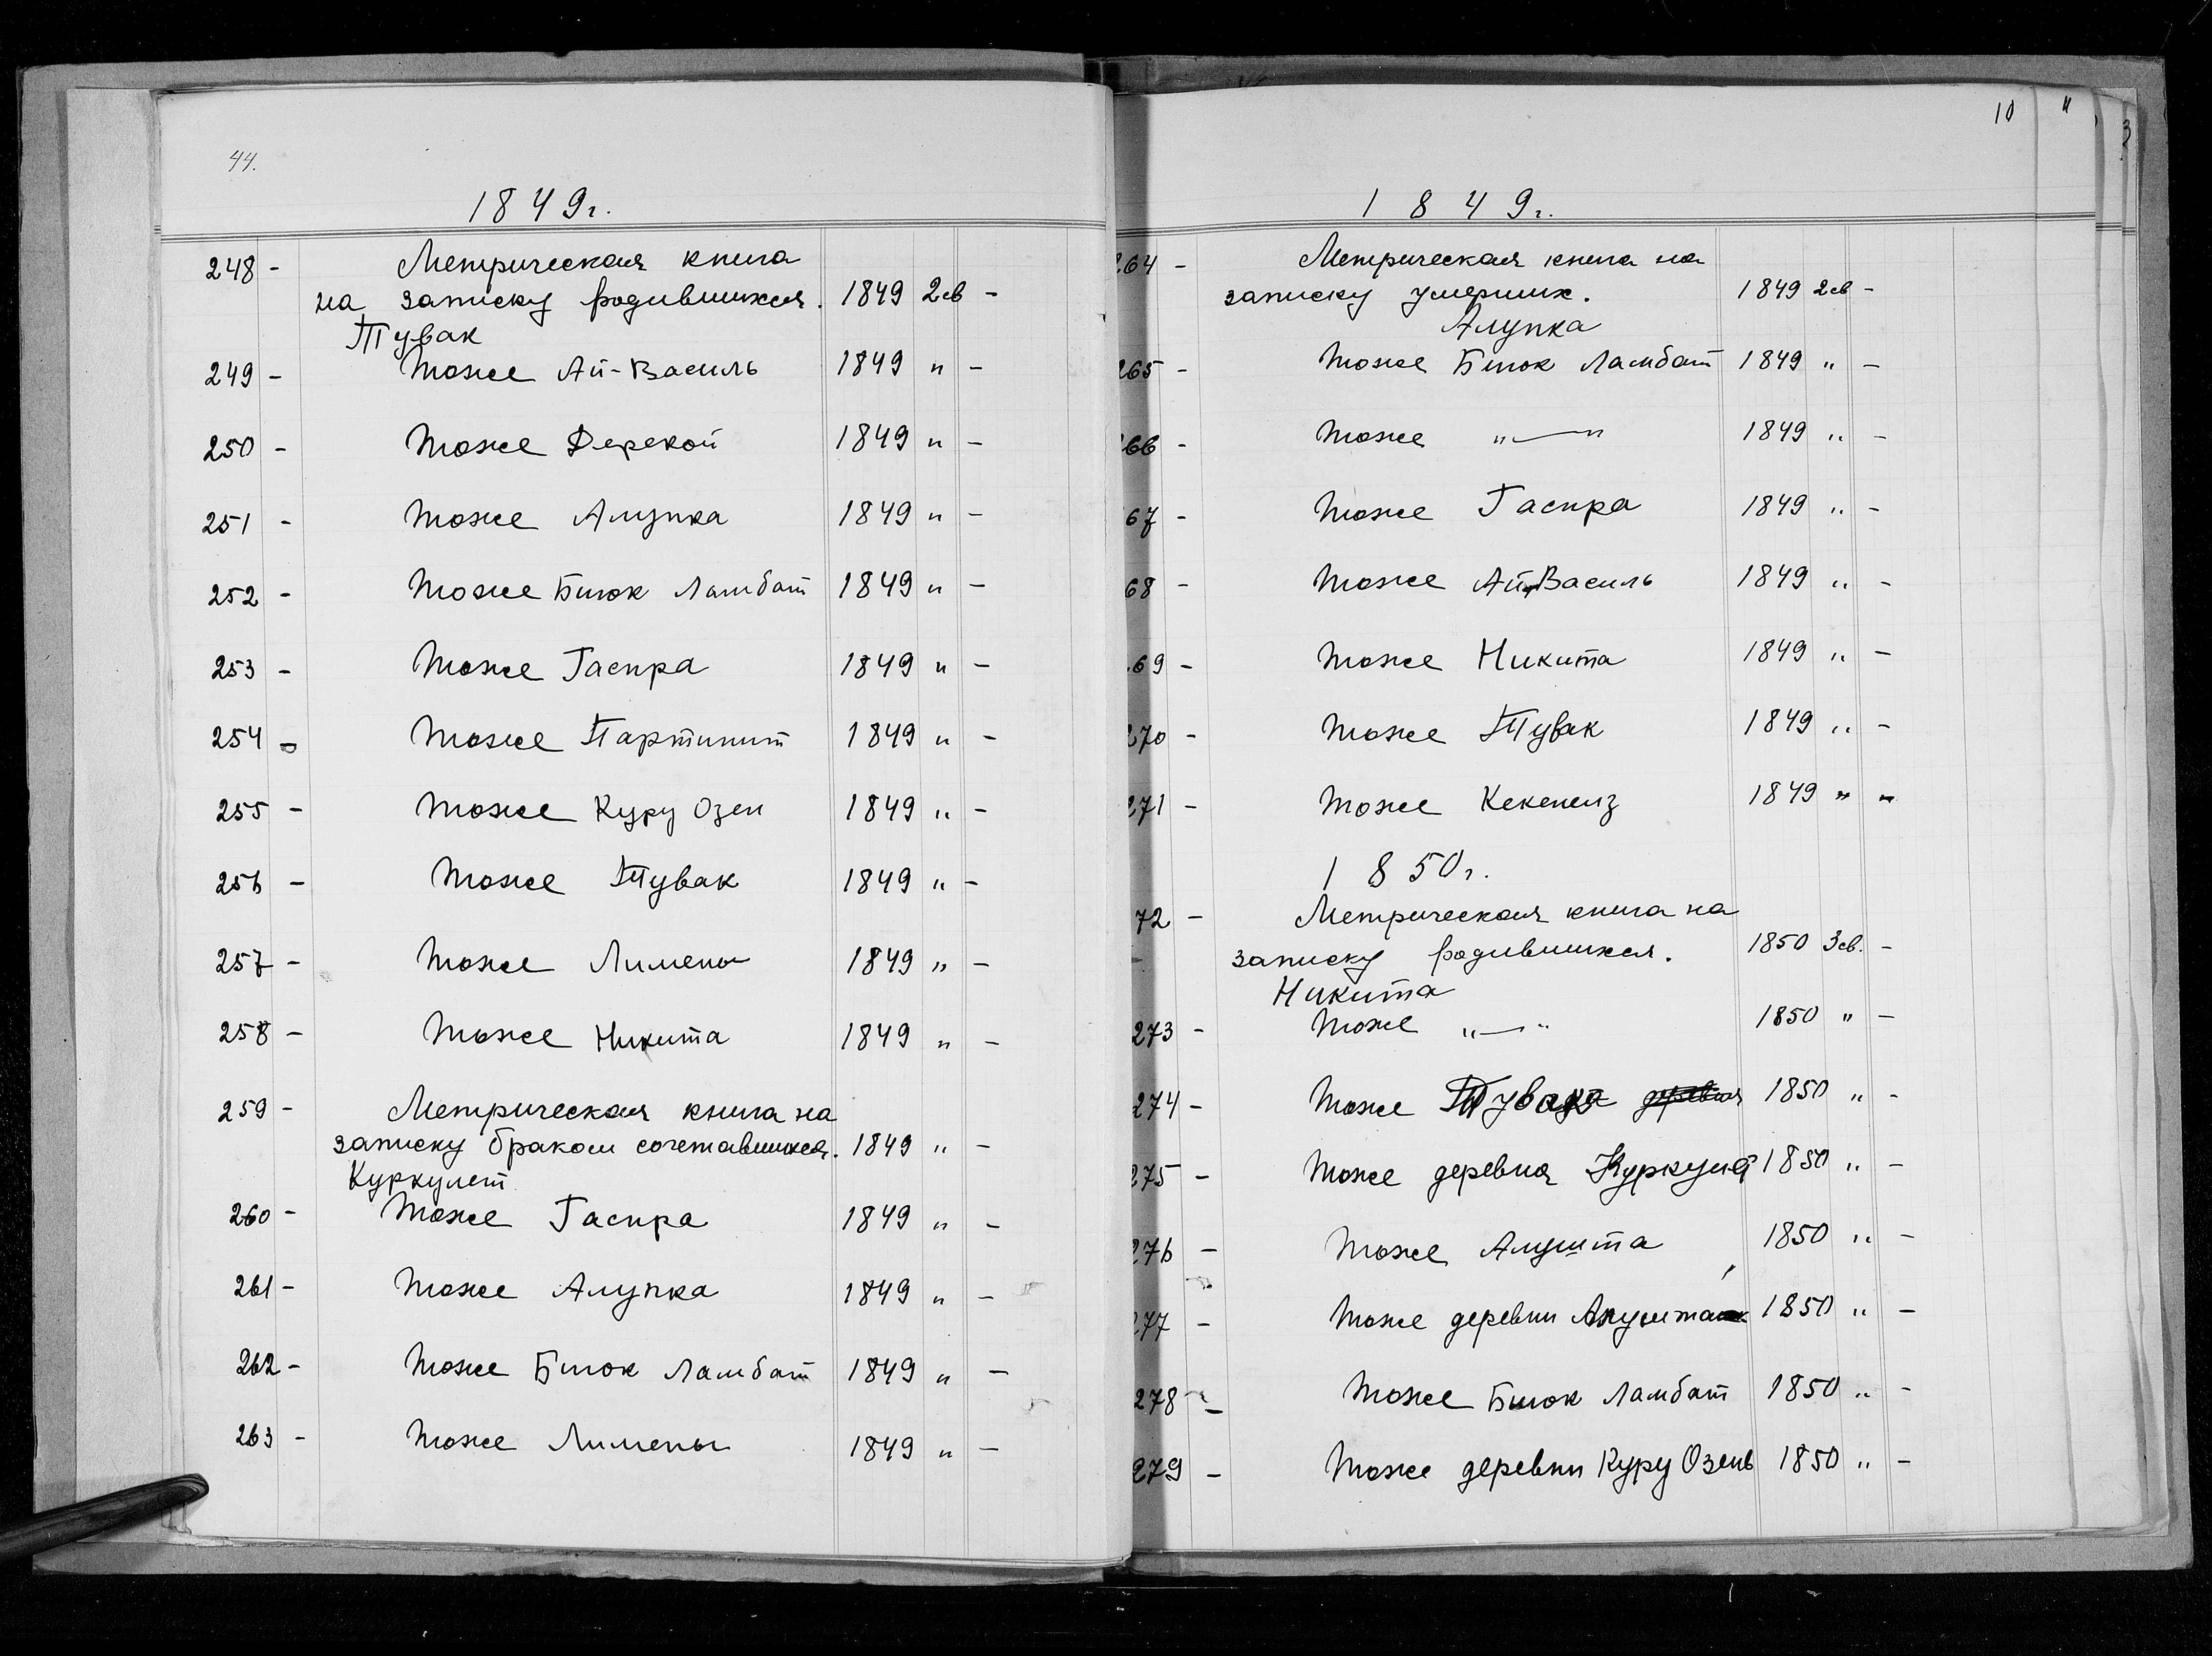 44.
1849г.
248 - Метрическая книга
на записку родившихся. 1849 2св -
Тувак
249 - Тоже Ай-Василь 1849 " -
250 - Тоже Дерекой 1849 " -
251 - Тоже Алупка 1849 " -
252 - Тоже Биюк Ламбат 1849 " -
253 - Тоже Гаспра 1849 " -
254 - Тоже Партинит 1849 " -
255 - Тоже Куру Озен 1849 " -
256 - Тоже Тувак 1849 " -
257 - Тоже Лимены 1849 " -
258 - Тоже Никита 1849 " -
259 - Метрическая книга на
записку браком сочетавшихся. 1849 " -
Куркулет
260 - Тоже Гаспра 1849 " -
261 - Тоже Алупка 1849 " -
262 - Тоже Биюк Ламбат 1849 " -
263 - Тоже Лимены 1849 " -
10 11 3
1849г.
264 - Метрическая книга на
записку умерших. 1849 2св -
Алупка
265 - Тоже Биюк Ламбат 1849 " -
266 - Тоже "—" 1849 " -
67 - Тоже Гаспра 1849 " -
68 - Тоже Ай-Василь 1849 " -
69 - Тоже Никита 1849 " -
270 - Тоже Тувак 1849 " -
271 - Тоже Кекенеиз 1849 " "
1850г.
72 - Метрическая книга на
записку родившихся. 1850 3св. -
Никита
273 - Тоже "—" 1850 " -
274 - Тоже Тувак 1850 " -
275 - Тоже деревня 1850 " -
276 - Тоже Алушта 1850 " -
277 - Тоже деревни Алушта 1850 " -
278 - Тоже Биюк Ламбат 1850 " -
279 - Тоже деревни Куру Озень 1850 " -